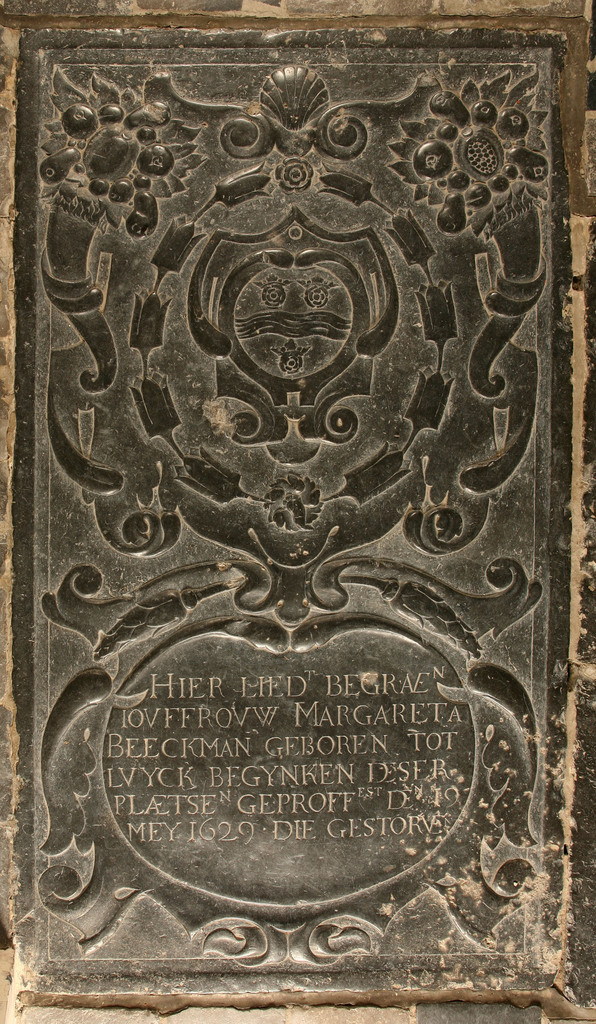 HIER LIEDT BEGRAEN
IOVFFROVW MARGARETA
BEECKMAN GEBOREN TOT
LVYCK BEGYNKEN DESER
PLÆTSEN GEPROFFEST DEN 19
MEY 1629 · DIE GESTORVEN